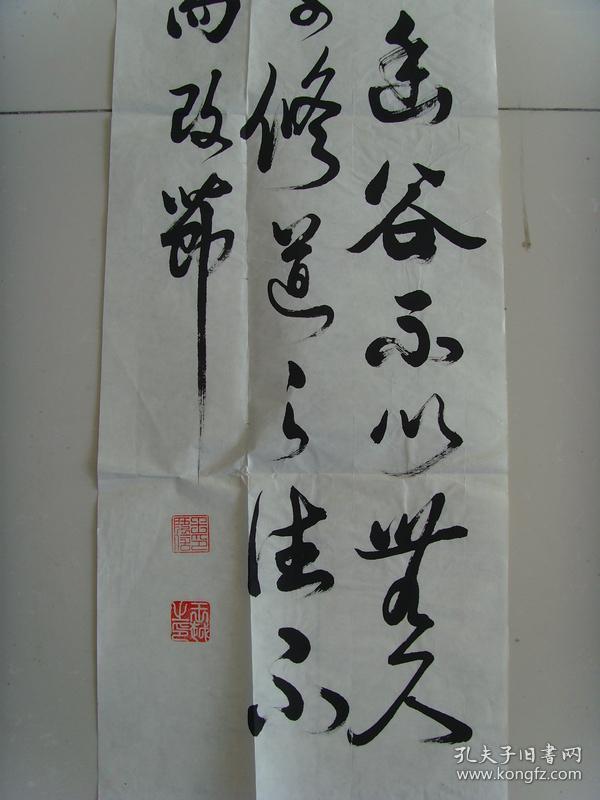 幽谷不以無人
修道立德不
而改節
孔夫子旧书网
www.kongfz.com